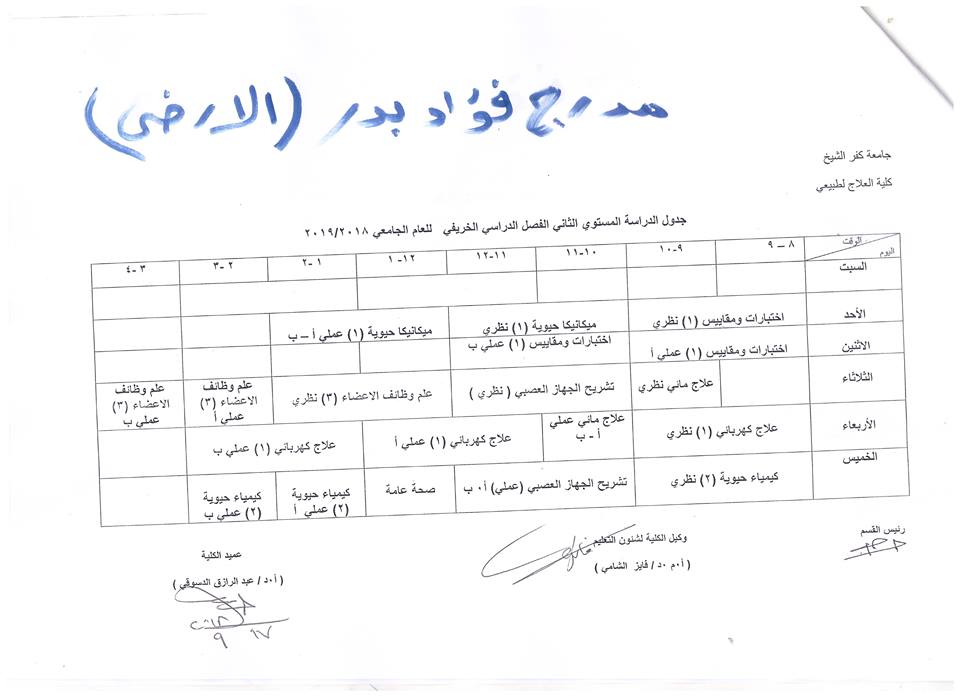 مدرج فؤاد بدر (الارضى)
جامعة كفر الشيخ
كلية العلاج لطبيعي
جدول الدراسة المستوي الثاني الفصل الدراسي الخريفي للعام الجامعي ٢٠١٩/٢٠١٨
الوقت
اليوم
٨ – ٩
٩-١٠
١٠-١١
١١-١٢
١٢-١
١ -٢
٢ -٣
٣ -٤
السبت
الأحد
اختبارات ومقاييس (١) نظري
ميكانيكا حيوية (١) نظري
ميكانيكا حيوية (١) عملي أ – ب
الاثنين
اختبارات ومقاييس (١) عملي أ
اختبارات ومقاييس (١) عملي ب
الثلاثاء
علاج مائي نظري
تشريح الجهاز العصبي ( نظري )
علم وظائف الاعضاء (٣) نظري
علم وظائف
الاعضاء (٣)
عملي أ
علم وظائف
الاعضاء (٣)
عملي ب
الأربعاء
علاج كهربائي (١) نظري
علاج مائي عملي
أ - ب
علاج كهربائي (١) عملي أ
علاج كهربائي (١) عملي ب
الخميس
كيمياء حيوية (٢) نظري
تشريح الجهاز العصبي (عملي) أ٠ ب
صحة عامة
كيمياء حيوية
(٢) عملي أ
كيمياء حيوية
(٢) عملي ب
رئيس القسم
وكيل الكلية لشئون التعليم
(أ٠م ٠د/ فايز الشامي )
عميد الكلية
( أ٠د/ عبد الرازق الدسوقي )
١٧
٩